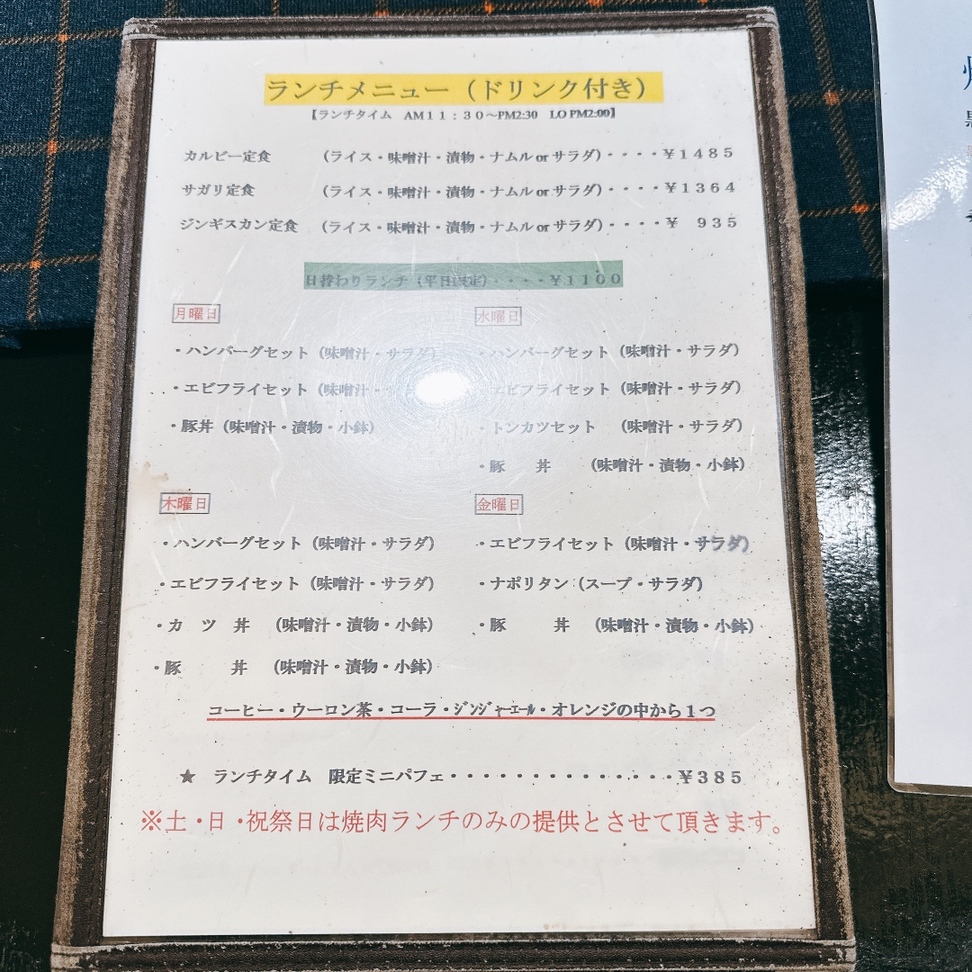 ランチメニュー（ドリンク付き）
【ランチタイム　AM１１：３０～PM2:30　LO PM2:00】
カルビー定食　（ライス・味噌汁・漬物・ナムル or サラダ）・・・・￥１４８５
サガリ定食　（ライス・味噌汁・漬物・ナムル or サラダ）・・・・￥１３６４
ジンギスカン定食　（ライス・味噌汁・漬物・ナムル or サラダ）・・・・￥　９３５
日替わりランチ（平日限定）・・・・￥１１００
月曜日
・ハンバーグセット（味噌汁・サラダ）
・エビフライセット（味噌汁・
・豚丼（味噌汁・漬物・小鉢）
水曜日
・ハンバーグセット（味噌汁・サラダ）
エビフライセット（味噌汁・サラダ）
・トンカツセット　（味噌汁・サラダ）
・豚　丼　（味噌汁・漬物・小鉢）
木曜日
・ハンバーグセット（味噌汁・サラダ）
・エビフライセット（味噌汁・サラダ）
・カ　ツ　丼　（味噌汁・漬物・小鉢）
・豚　　　丼　（味噌汁・漬物・小鉢）
金曜日
・エビフライセット（味噌汁・サラダ）
・ナポリタン（スープ・サラダ）
・豚　　　丼　（味噌汁・漬物・小鉢）
コーヒー・ウーロン茶・コーラ・ｼﾞﾝｼﾞｬｰｴｰﾙ・オレンジの中から１つ
★　ランチタイム　限定ミニパフェ・・・・・・・・・・・・・・￥３８５
※土・日・祝祭日は焼肉ランチのみの提供とさせて頂きます。